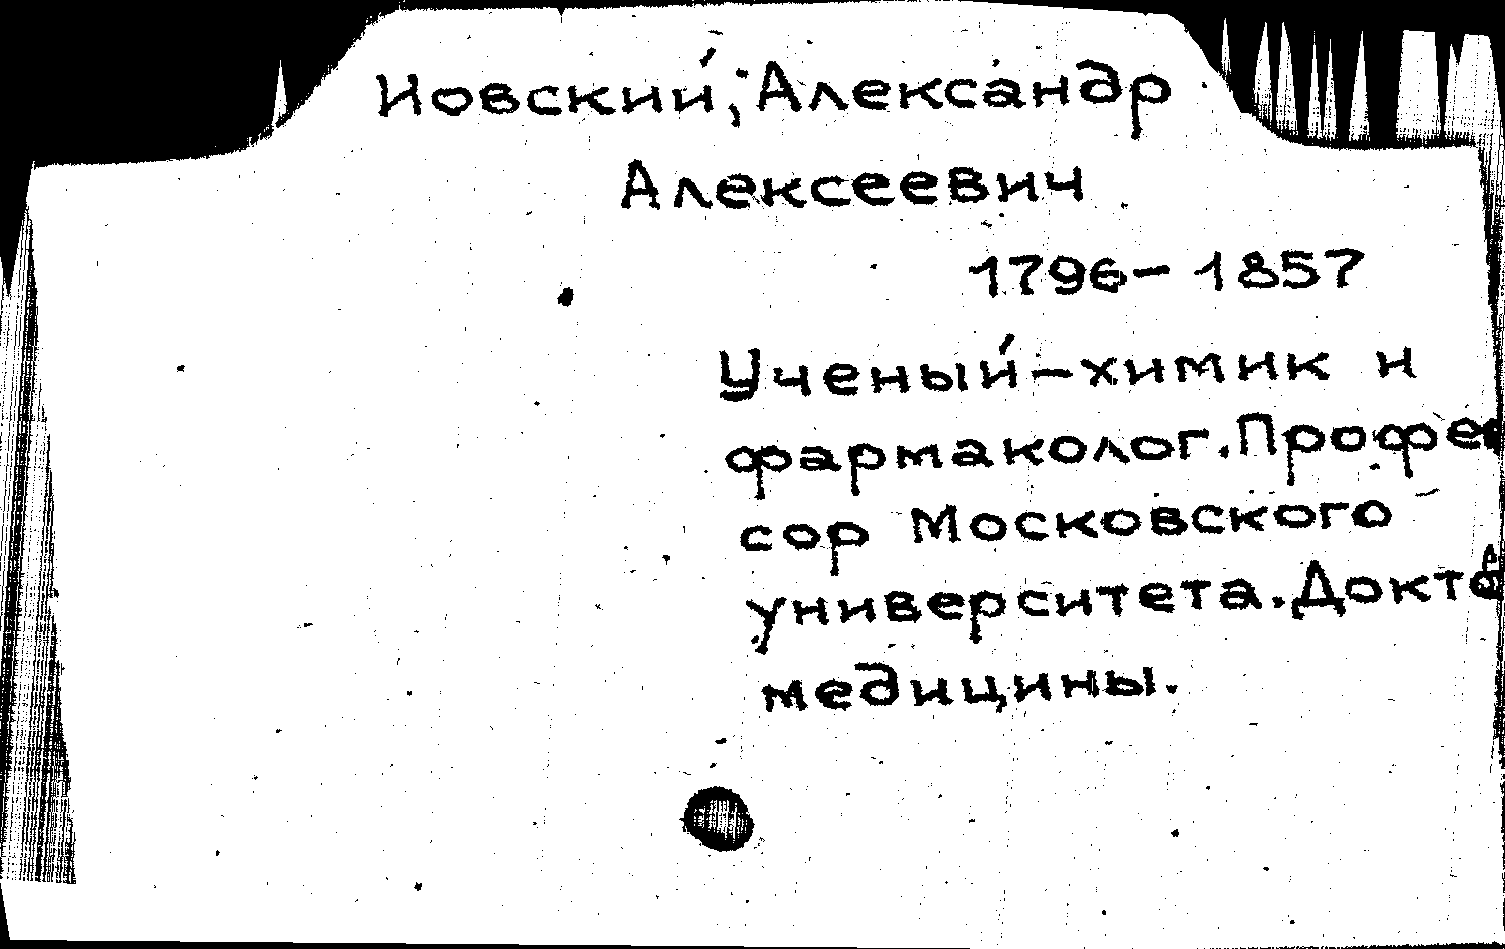 Иовский, Александр
Алексеевич
1796-1857
Ученый-химик и
фармаколог. Профес
сор Московского
университета. Докто
медицины.